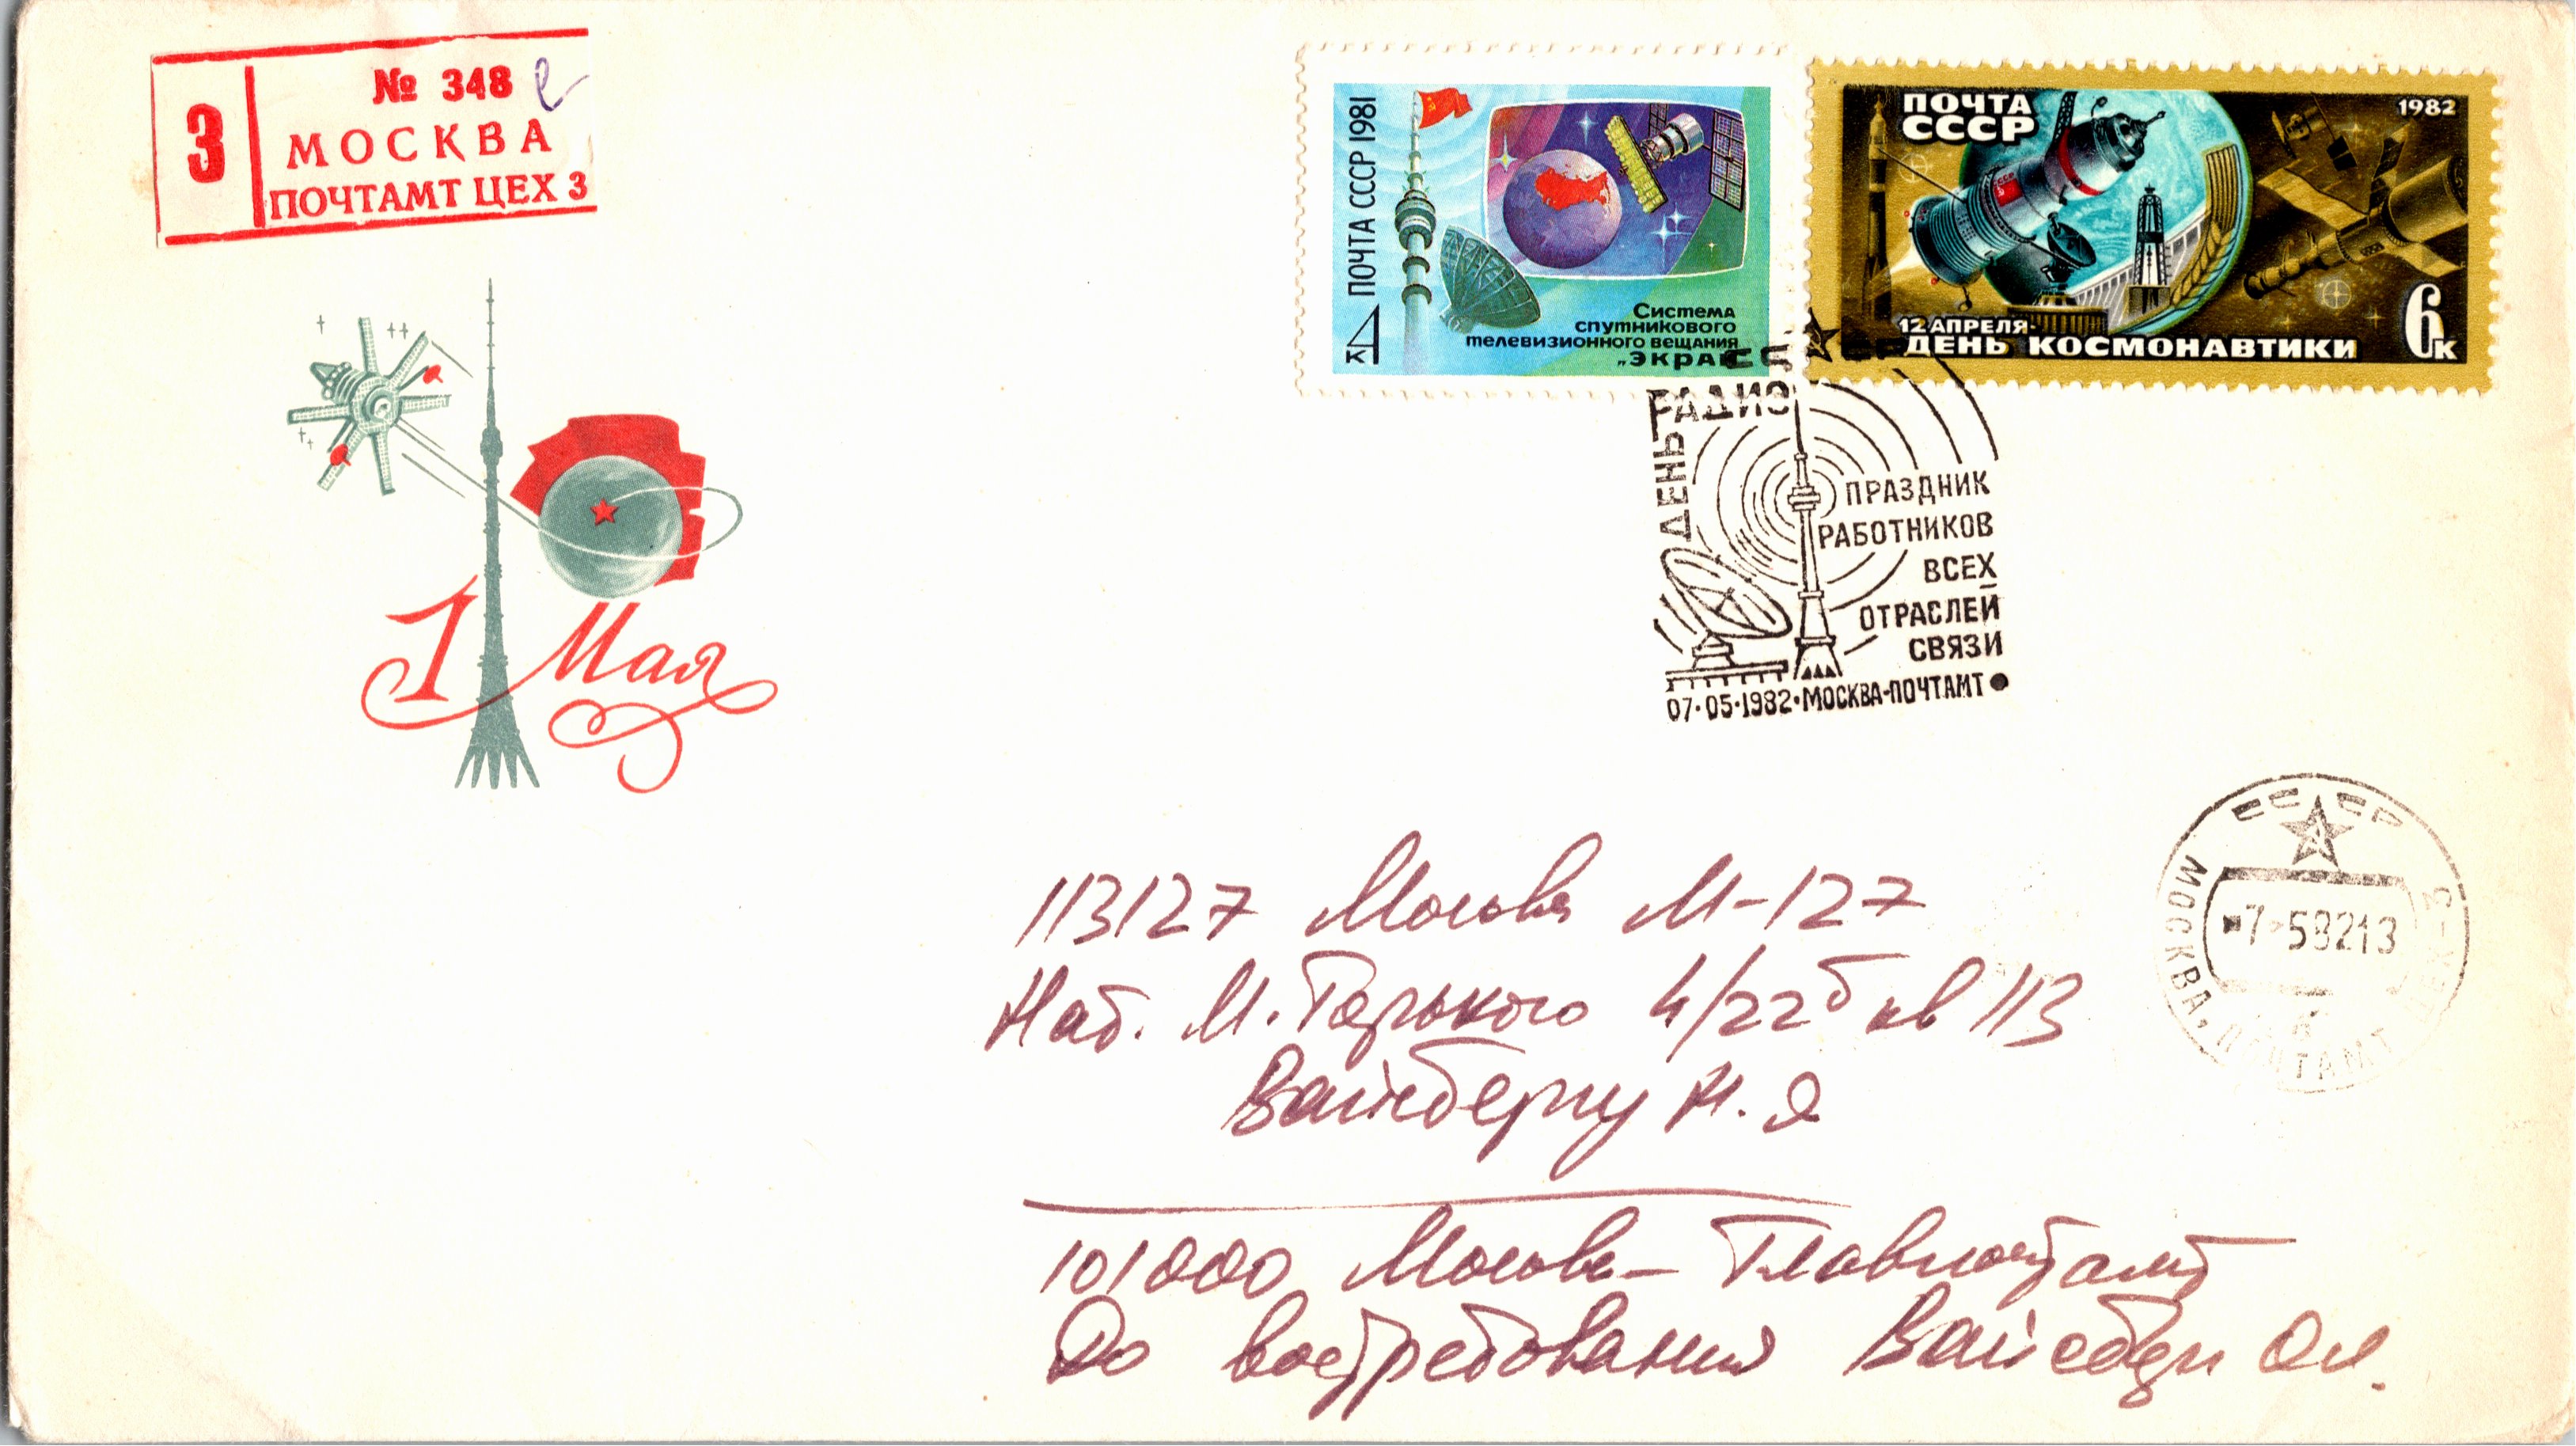 3
№ 348
МОСКВА
ПОЧТАМТ ЦЕХ 3
1 Мая
ПОЧТА СССР 1981
4 к
Система
спутникового
телевизионного вещания
„ЭКРАН
ПОЧТА
СССР
1982
12 АПРЕЛЯ-
ДЕНЬ КОСМОНАВТИКИ
6к
СССР
ДЕНЬ РАДИО
ПРАЗДНИК
РАБОТНИКОВ
ВСЕХ
ОТРАСЛЕЙ
СВЯЗИ
07·05·1982·МОСКВА-ПОЧТАМТ
СССР
-7-58213
МОСКВА, ПОЧТАМТ
113127 Москва М-127
Наб. М. Горького 4/22б кв 113
Вайнбергу Н. Я
101000 Москва - Главпочтамт
До востребования